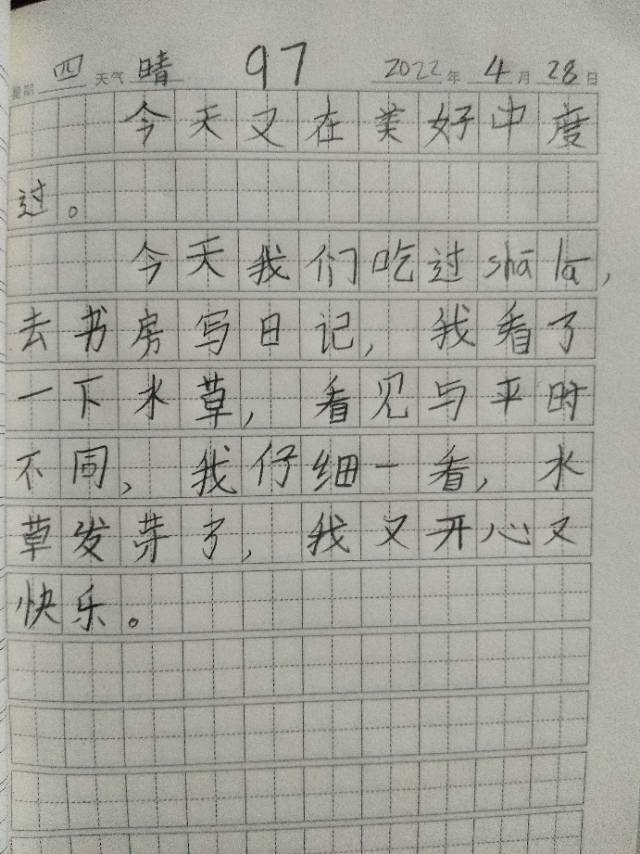 星期 四 天气 晴 97 2022年 4月 28日
今天又在美好中度
过。
今天我们吃过shā lā,
去书房写日记,我看了
一下水草,看见与平时
不同,我仔细一看,水
草发芽了,我又开心又
快乐。